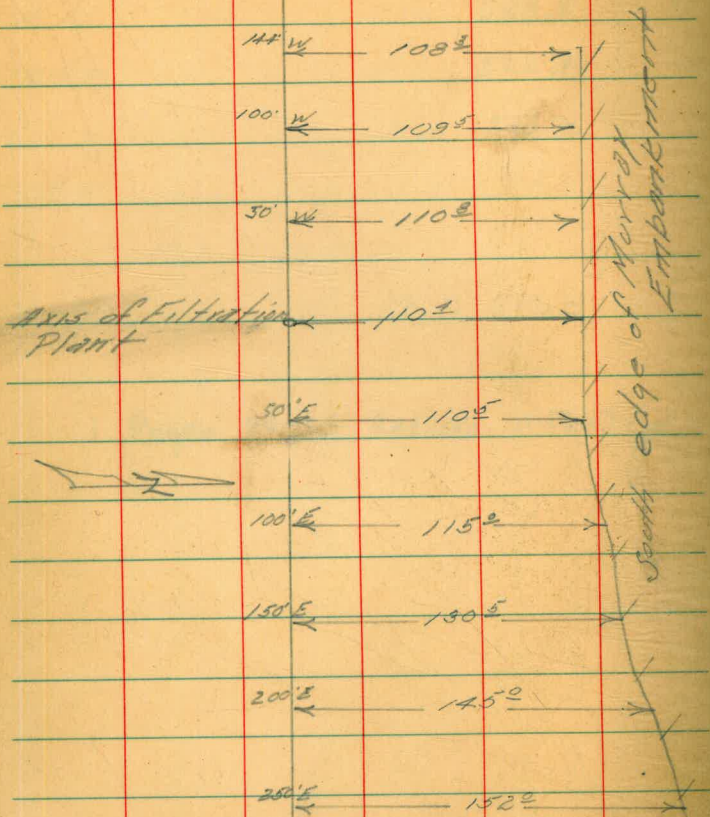 144' W 108 3
100' W 109 5
50' W 110 2
Axis of Filtration
Plant
110 1
50' E 110 5
N
100' E 115 0
150' E 130 5
200' E 145 0
250' E 152 0
South edge of Murray
Embankment